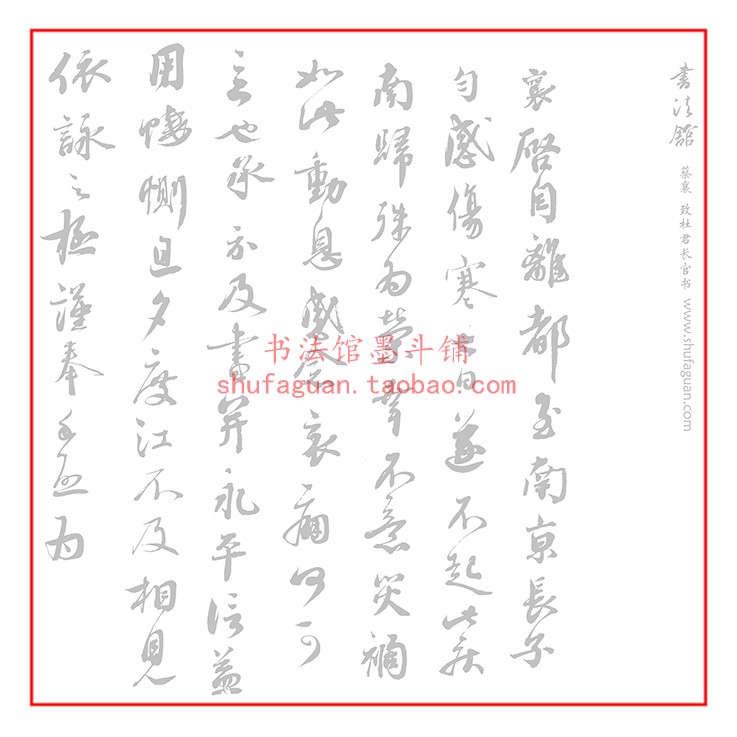 書法館 蔡襄 致杜君长官书 www.shufaguan.com
襄啓自離都至南京長子
匀感傷寒七日遂不起此疾
南歸殊為榮幸不意災禍
如此動息感念哀痛何可
言也承示及書并永平信益
用悽惻旦夕度江不及相見
依詠之極謹奉手啓為
书法馆墨斗铺
shufaguan.taobao.com